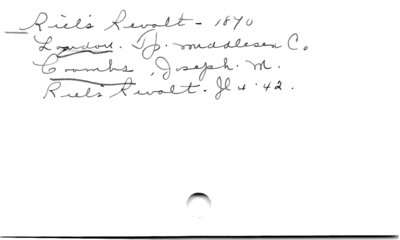 Riel's Revolt - 1870
London. Tp. Middlesex Co.
Coombs, Joseph. M.
Riel's Revolt. Jl 4 '42.